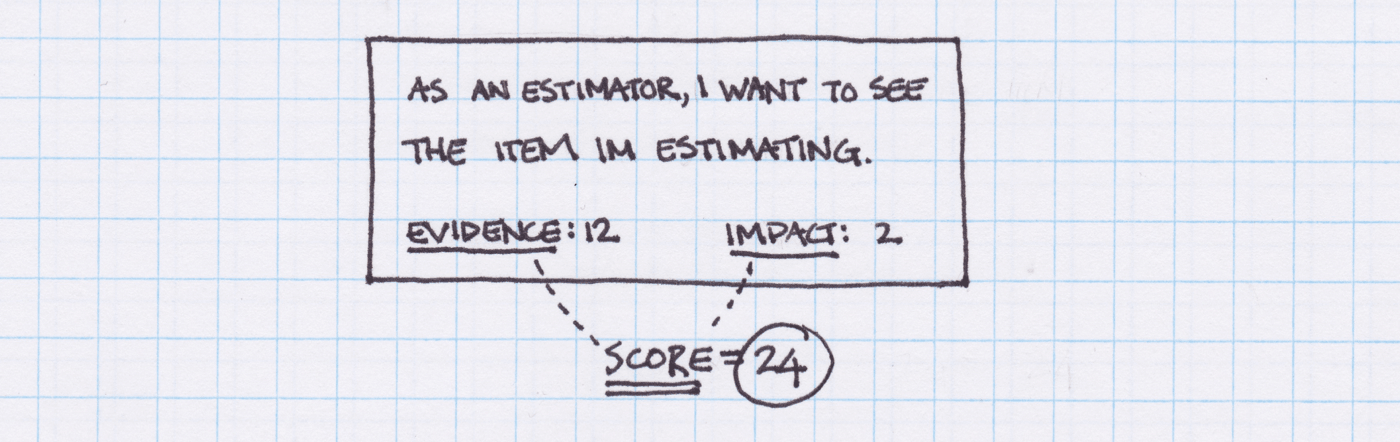 AS AN ESTIMATOR, I WANT TO SEE
THE ITEM IM ESTIMATING.
EVIDENCE: 12 IMPACT: 2
SCORE = 24